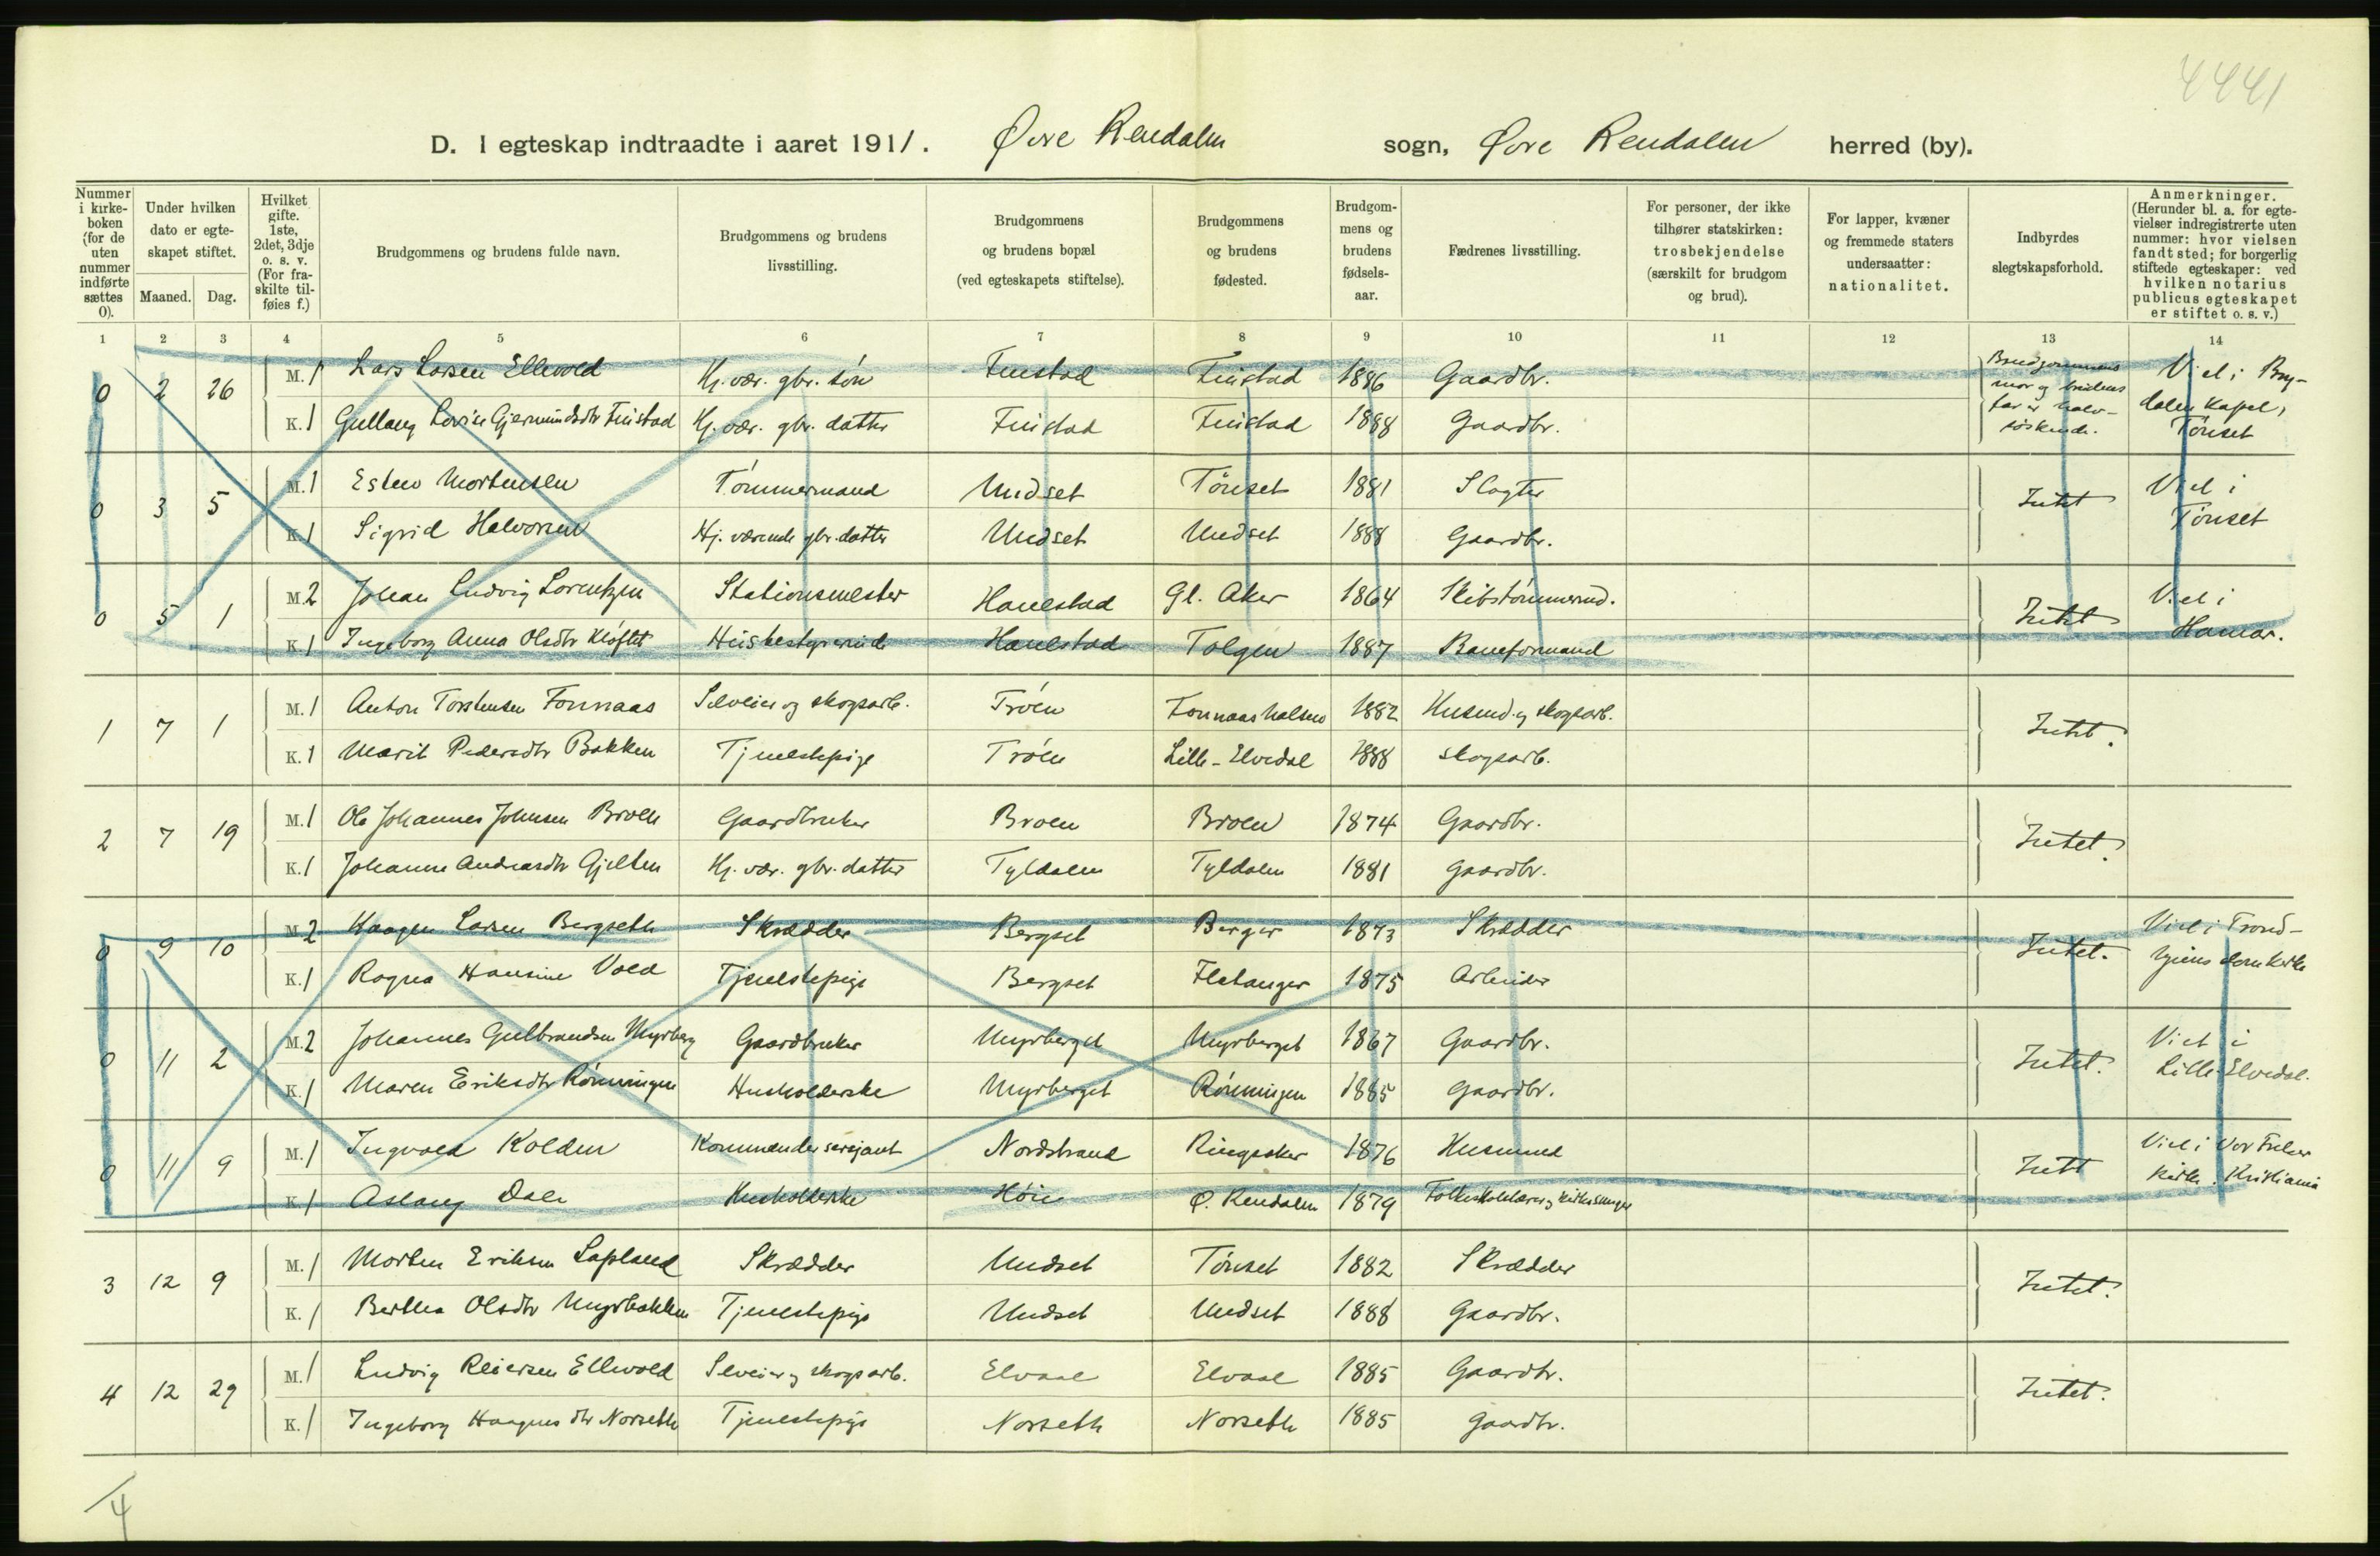 4441
D. I egteskap indtraadte i aaret 1911. Øvre Rendalen sogn, Øvre Rendalen herred (by).
Nummer i kirke-boken (for de uten nummer indførte sættes 0).
Under hvilken dato er egte-skapet stiftet.
Maaned. Dag.
Hvilket gifte. 1ste, 2det, 3dje o. s. v. (For fra-skilte til-føies f.)
Brudgommens og brudens fulde navn.
Brudgommens og brudens livsstilling.
Brudgommens og brudens bopæl (ved egteskapets stiftelse).
Brudgommens og brudens fødested.
Brudgom-mens og brudens fødsels-aar.
Fædrenes livsstilling.
For personer, der ikke tilhører statskirken: trosbekjendelse (særskilt for brudgom og brud).
For lapper, kvæner og fremmede staters undersaatter: nationalitet.
Indbyrdes slegtskapsforhold.
Anmerkninger. (Herunder bl. a. for egte-vielser indregistrerte uten nummer: hvor vielsen fandt sted; for borgerlig stiftede egteskaper: ved hvilken notarius publicus egteskapet er stiftet o. s. v.)
1 2 3 4 5 6 7 8 9 10 11 12 13 14
0 2 26 M. 1 Lars Larsen Ellevold Hj. vær. gbr. søn Finstad Finstad 1886 Gaardbr. Brudgommens mor og brudens far er halv-søskende. Viet i Bry-dalen Kapel, Tönset
K. 1 Gullaug Lovise Gjermundsdtr Finstad Hj. vær. gbr. datter Finstad Finstad 1888 Gaardbr.
0 3 5 M. 1 Esten Mortensen Tömmermand Undset Tönset 1881 Slagter Intet Viet i Tönset
K. 1 Sigrid Halvorsen Hj. værende gbr. datter Undset Undset 1888 Gaardbr.
0 5 1 M. 2 Johan Ludvig Lorentzen Stationsmester Hanestad Gl. Aker 1864 Skibstömmermd. Intet Viet i Hamar.
K. 1 Ingeborg Anna Olsdtr Kløftet Husbestyrerinde Hanestad Tolgen 1887 Baneformand
1 7 1 M. 1 Anton Torstensen Fonnaas Selveier og skogsarb. Trøen Fonnaashalsen 1882 Husmd. og skogsarb. Intet.
K. 1 Marit Pedersdtr Bakken Tjenestepige Trøen Lille-Elvedal 1888 skogsarb.
2 7 19 M. 1 Ole Johannes Johnsen Broen Gaardbruker Broen Broen 1874 Gaardbr. Intet.
K. 1 Johanne Andreasdtr Gjelten Hj. vær. gbr. datter Tyldalen Tyldalen 1881 gaardbr.
0 9 10 M. 2 Haagen Larsen Bergseth Skrædder Bergset Berger 1873 Skrædder Intet. Viet i Trond-hjems domkirke
K. 1 Ragna Hansine Vold Tjenestepige Bergset Flatanger 1875 Arbeider
0 11 2 M. 2 Johannes Gulbrandsen Myrberg Gaardbruker Myrberget Myrberget 1867 Gaardbr. Intet. Viet i Lille Elvedal.
K. 1 Maren Eriksdtr Rönningen Husholderske Myrberget Rönningen 1885 gaardbr.
0 11 9 M. 1 Ingvald Kolden Kommandersersjant Nordstrand Ringsaker 1876 Husmand Intet Viet i Vor Frelser Kirke. Kristiania
K. 1 Aslaug Dale Husholderske Høie Ø. Rendalen 1879 Folkeskolelærer og kirkesanger
3 12 9 M. 1 Morten Eriksen Lapland Skrædder Undset Tönset 1882 Skrædder Intet.
K. 1 Berthea Olsdtr Myrbakken Tjenestepige Undset Undset 1888 Gaardbr.
4 12 29 M. 1 Ludvig Reiersen Ellevold Selveier og skogsarb. Elvaal Elvaal 1885 Gaardbr. Intet.
K. 1 Ingeborg Haagensdtr Norseth Tjenestepige Norseth Norseth 1885 gaardbr.
4